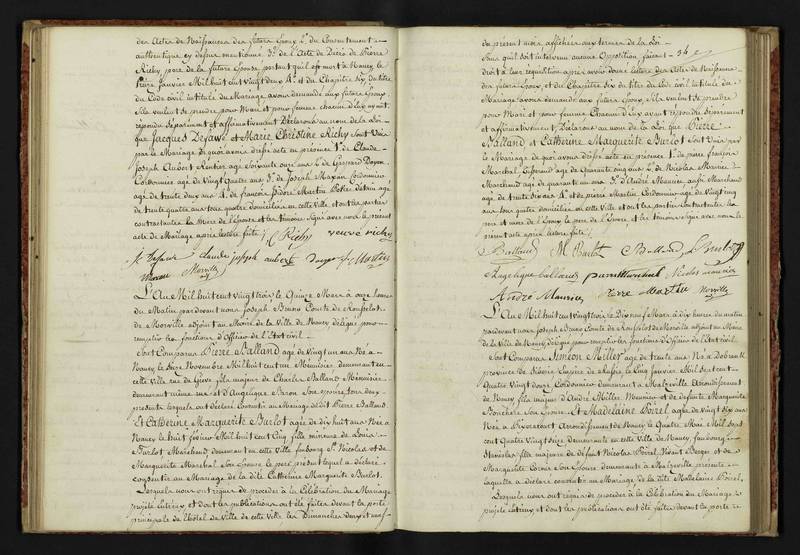 des Actes de Naissances des futurs Epoux 2.° du Consentement
authentique cy dessus mentionné 3.° de l'Acte de Décès de Pierre
Richy, pere de la future Epouse portant qu'il est mort à Nancy le
Janvier Mil huit cent vingt deux 4.° et du Chapitre six du titre
du Code civil intitulé du Mariage avons demandé aux futurs Epoux
s'ils veulent se prendre pour Mari et pour femme chacun d'eux ayant
répondu séparément et affirmativement Déclarons au nom de la Loi
que Jacques et Marie Christine Richy sont Unis
par le Mariage de quoi avons dressé acte en présence 1.° de Claude
Joseph Aubert Rentier agé soixante ans 2.° de
Cordonnier agé de Vingt quatre ans 3.° de Joseph Cordonnier
agé de trente deux ans 4.° de françois Martin Potier d'étain agé
de trente quatre ans tous quatre domiciliés en cette Ville et ont les parties
contractantes la Mere de l'Epouse et les témoins signé avec nous le présent
acte de Mariage après lecture faite
C Richy veuve richy
claude joseph aubert Martin
Morville
L'An Mil huit cent vingt trois, le Quinze Mars à onze heures
du Matin pardevant nous Joseph Bruno Comte de
de Morville adjoint au Maire de la Ville de Nancy délégué pour
remplir les fonctions d'Officier de l'état civil
Sont Comparus Pierre Balland agé de vingt un ans Né à
Nancy le Novembre Mil huit cent un Menuisier, demeurant en
cette Ville rue fils majeur de Charles Balland Menuisier
demeurant même rue et d'Angelique son épouse tous deux
présents lesquels ont déclaré consentir au Mariage dudit Pierre Balland
Et Catherine Marguerite Burlot agée de dix huit ans Née à
Nancy le huit février Mil huit cent Cinq fille mineure de Louis
Burlot Marchand demeurant en cette Ville faubourg S.t Nicolas et de
Marguerite Marchal Son Epouse le pere présent lequel a déclaré
consentir au Mariage de la dite Catherine Marguerite Burlot
Lesquels nous ont requis de procéder à la Célébration du Mariage
projeté entr'eux et dont les publications ont été faites devant la porte
principale de l'hôtel de Ville de cette ville les Dimanches deux et neuf
du présent mois affichées aux termes de la Loi
Sans qu'il soit intervenu aucune Opposition, faisant
droit à leur réquisition après avoir donné lecture des Actes de Naissance
des futurs Epoux et du Chapitre six du titre du Code civil intitulé du
Mariage avons demandé aux futurs Epoux s'ils veulent se prendre
pour Mari et pour femme chacun d'eux ayant répondu séparément
et affirmativement, Déclarons au nom de la Loi que Pierre
Balland et Catherine Marguerite Burlot sont Unis par
le Mariage de quoi avons dressé acte en présence 1.° de pierre françois
Marchal agé de Quarante ans 2.° de Nicolas Maurice
Marchand agé de quarante un ans 3.° d'André Maurice aussi Marchand
agé de trente six ans et 4.° de pierre Martin Cordonnier agé de Vingt cinq
ans tous quatre domiciliés en cette Ville et ont les parties Contractantes les
pere et mere de l'Epoux le pere de l'Epouse, et les témoins signé avec nous le
présent acte après lecture faite
Balland M Burlot Balland Burlot
angelique balland Nicolas maurice
André Maurice Pierre Martin Morville
L'An Mil huit cent vingt trois Le Dix neuf Mars à dix heures du matin
pardevant nous Joseph Bruno Comte de de Morville adjoint au Maire
de la Ville de Nancy délégué pour remplir les fonctions d'Officier de l'Etat civil
Sont Comparus Simeon Miller agé de trente ans Né à
province de Empire de Russie, le Janvier Mil Sept cent
Quatre Vingt douze Cordonnier demeurant à Malzéville Arrondissement
de Nancy fils majeur d'André Miller Meunier et de défunte Marguerite
son Epouse Et Madelaine agée de Vingt six ans
Née à Arrondissement de Nancy le Quatre Mai Mil sept
cent Quatre Vingt seize demeurante en cette Ville de Nancy, faubourg
Stanislas fille majeure de défunt Nicolas Vivant Berger et de
Marguerite son Epouse demeurante à Malzéville présente
laquelle a déclaré consentir au Mariage de la dite Madelaine
Lesquels nous ont requis de procéder à la Célébration du Mariage
projeté entr'eux et dont les publications ont été faites devant la porte